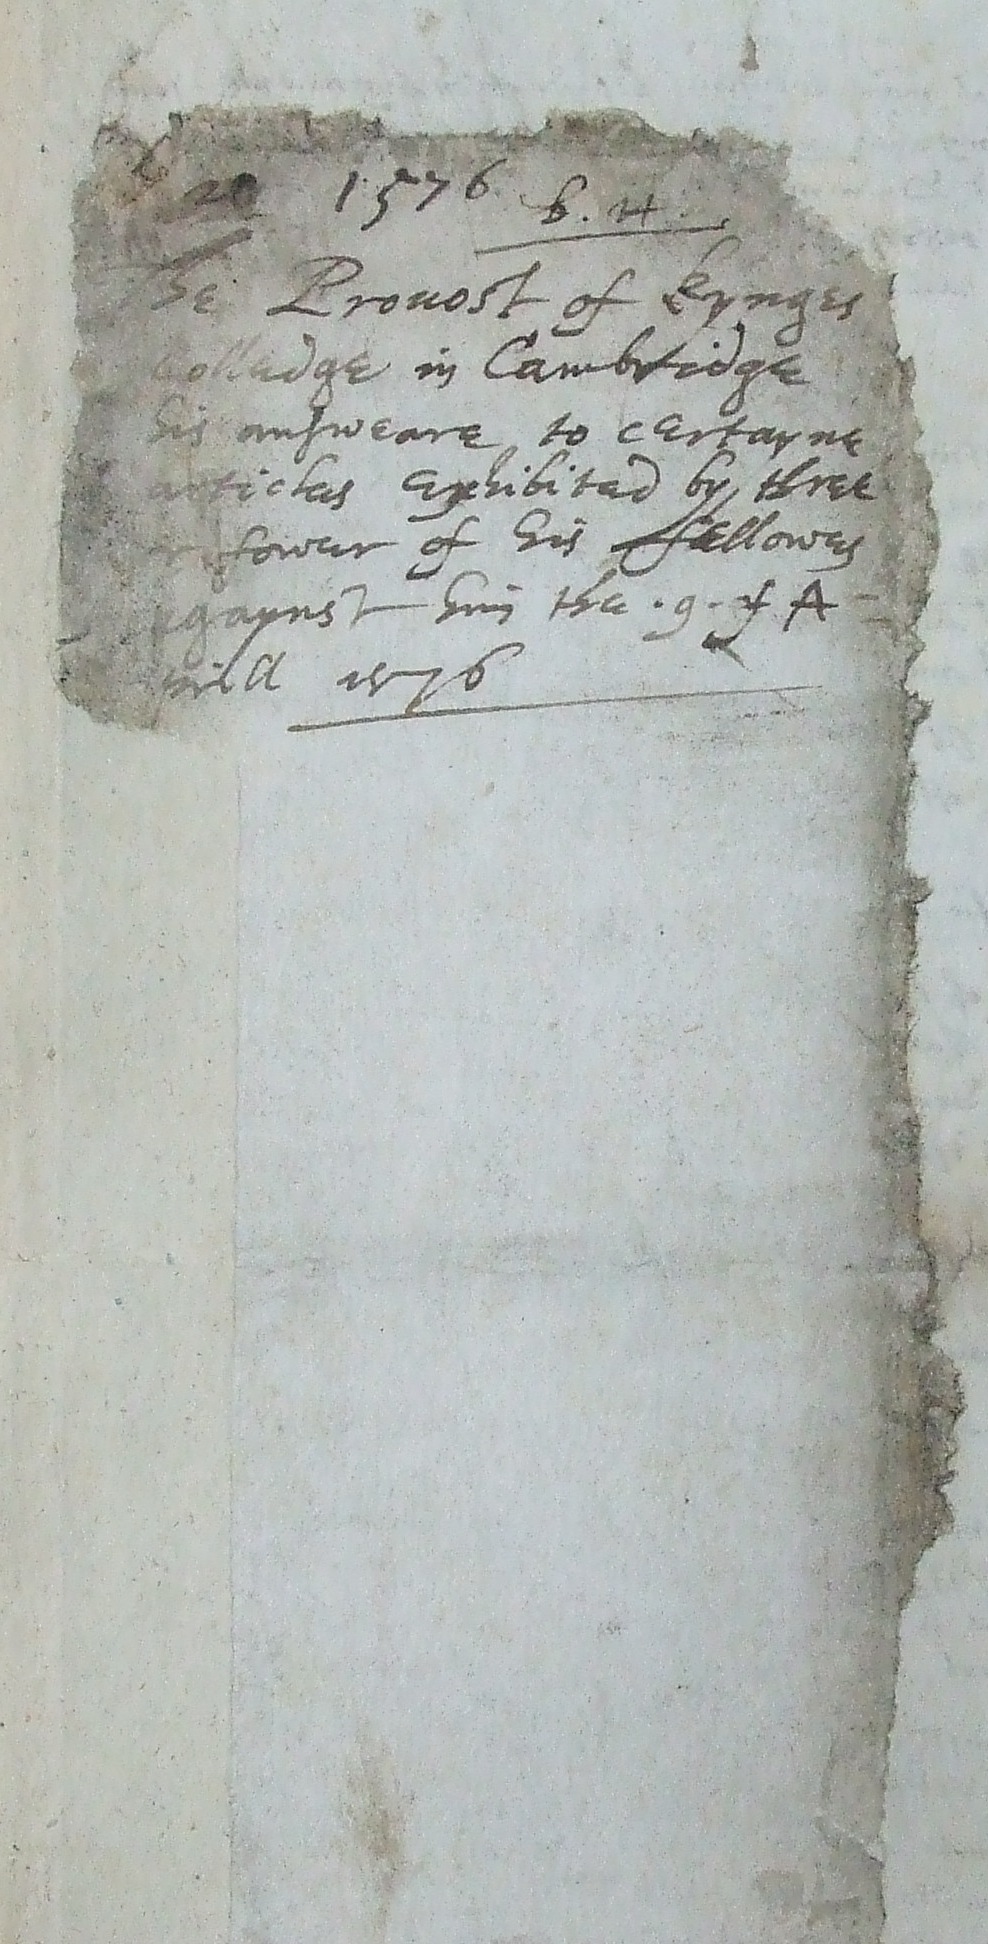 20 1576 b. 4.
The Prouost of kynges
Colledge in Cambridge
his answeare to certayne
articles exhibited by three
or fower of his fellowes
agaynst him the .9. of A-
prill 1576